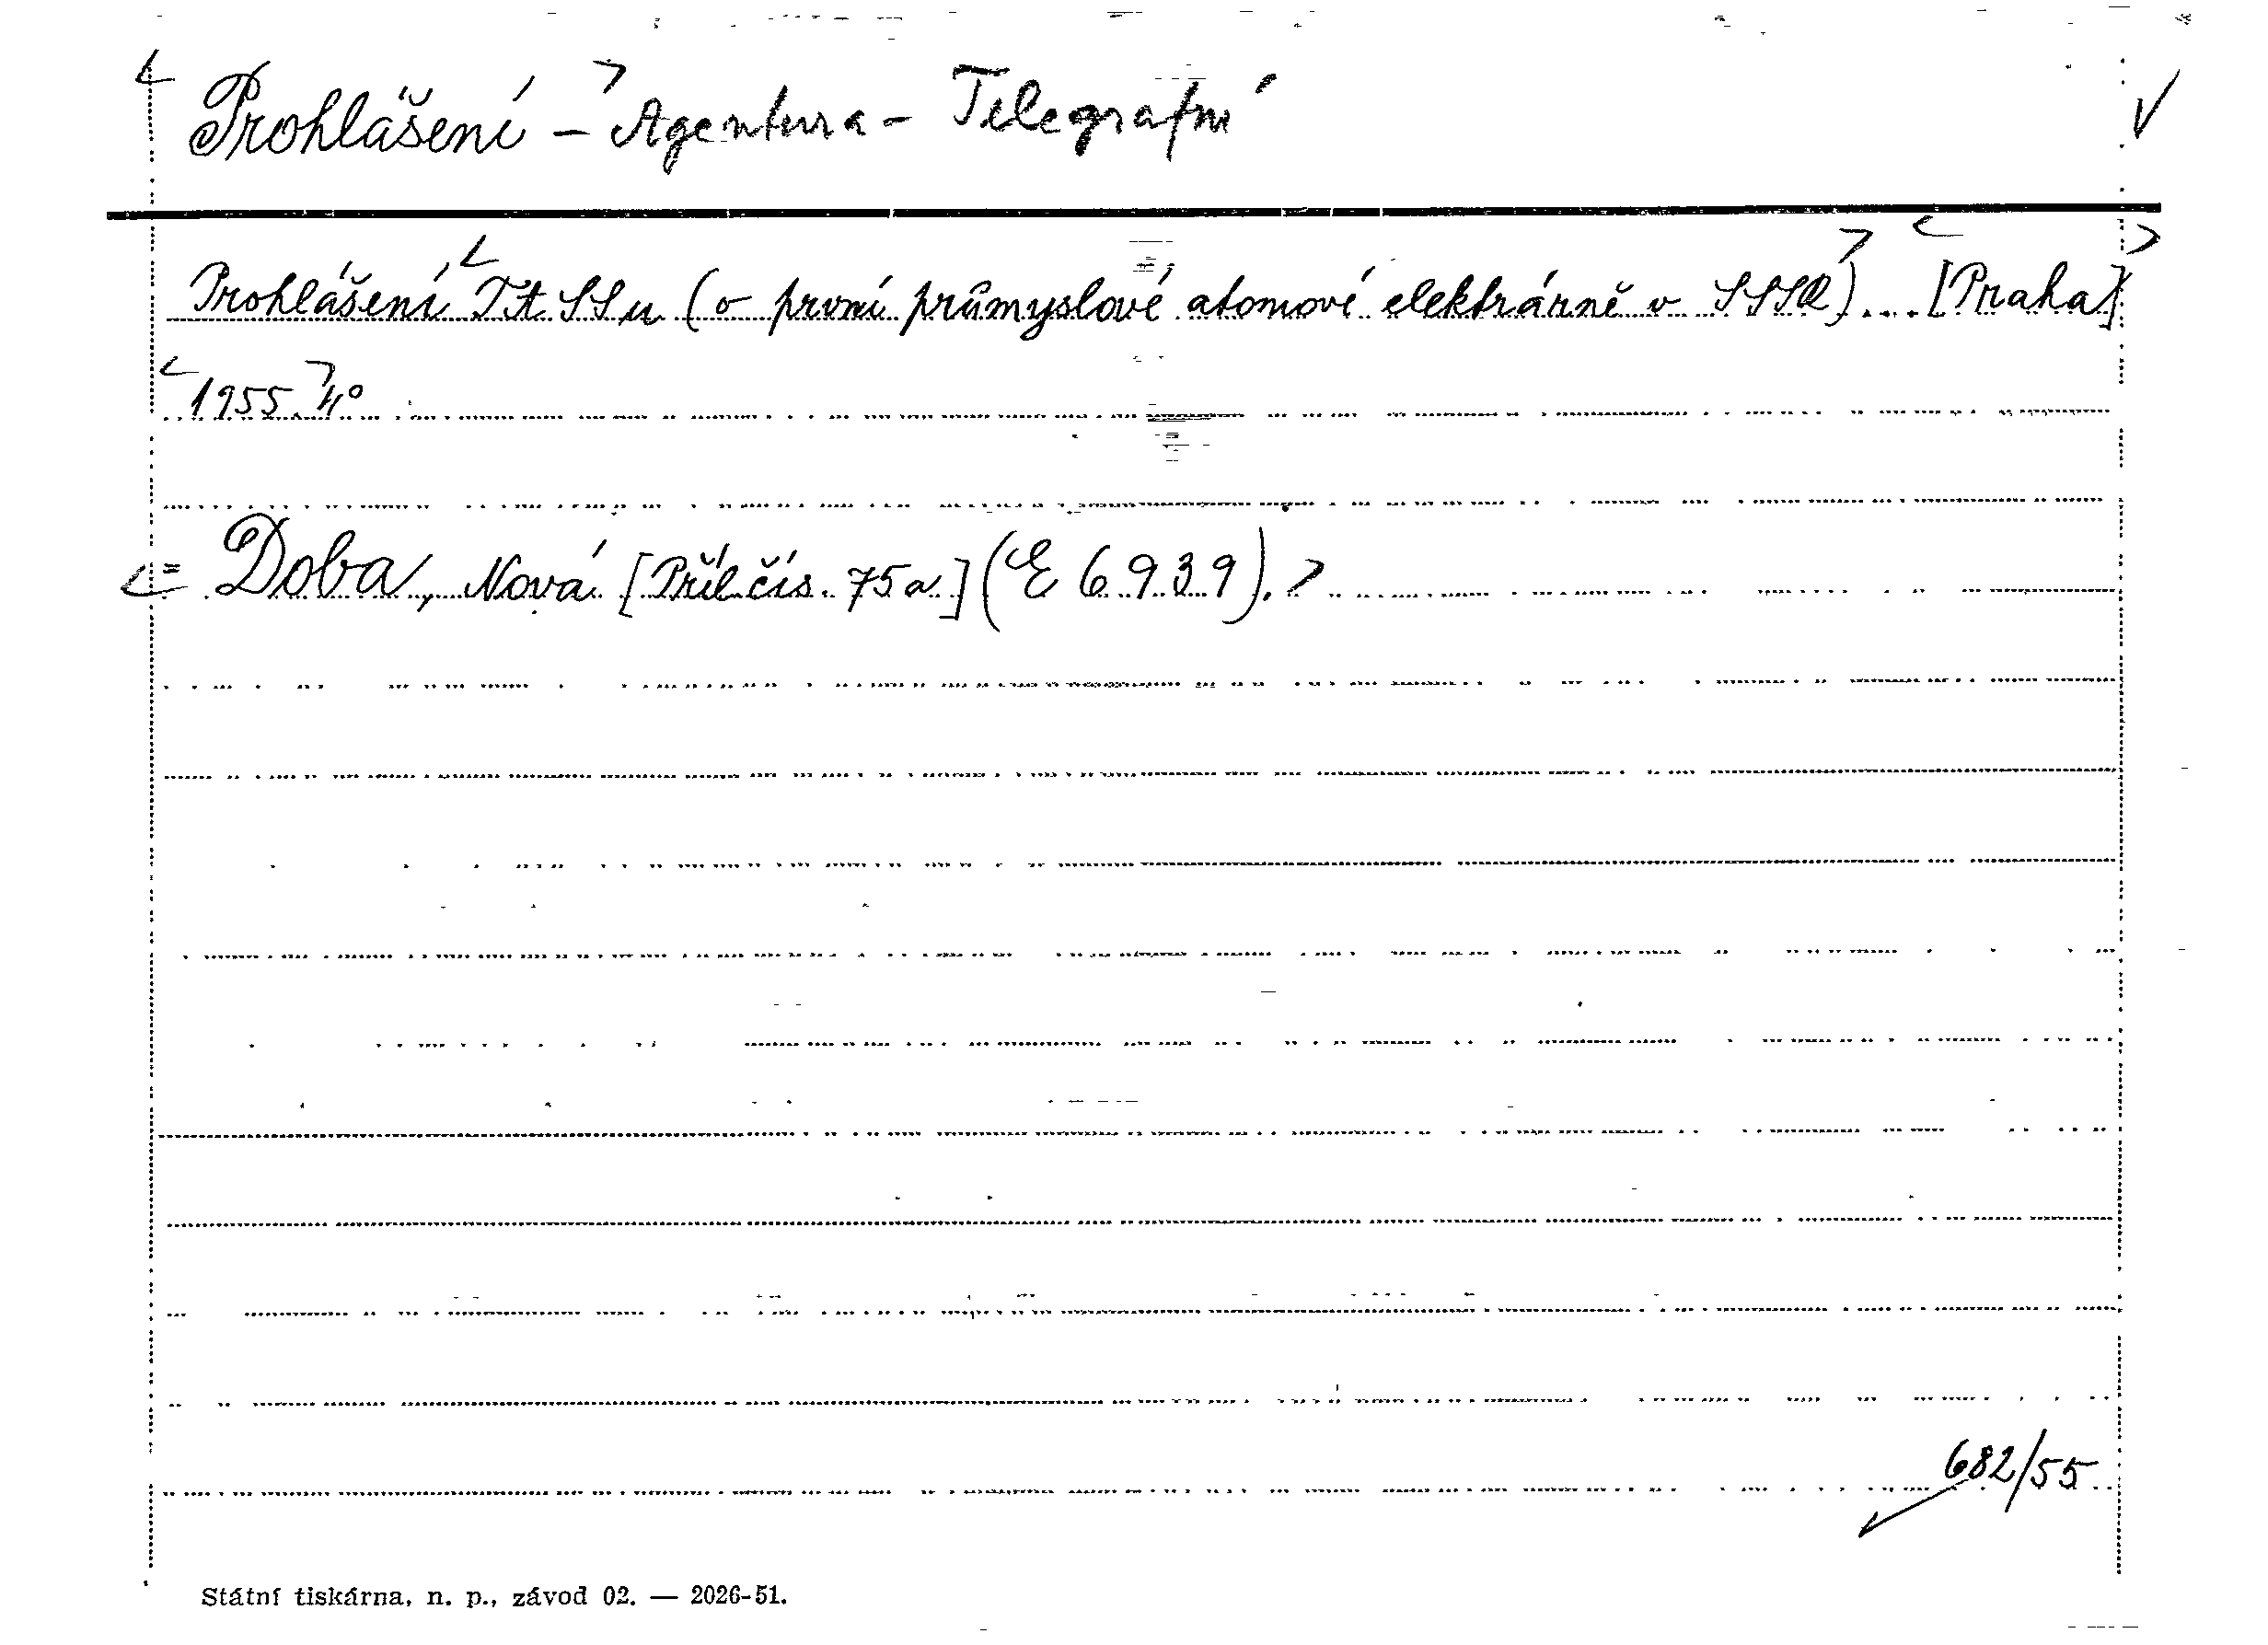 Prohlášení - Agentura - Telegrafní
Prohlášení TASSu (o první průmyslové atomové elektrárně v SSSR) ... [Praha]
1955. 4°
= Doba, Nová [Příl. čís. 75a] (E 6939).
682/55
Státní tiskárna, n. p., závod 02. — 2026-51.